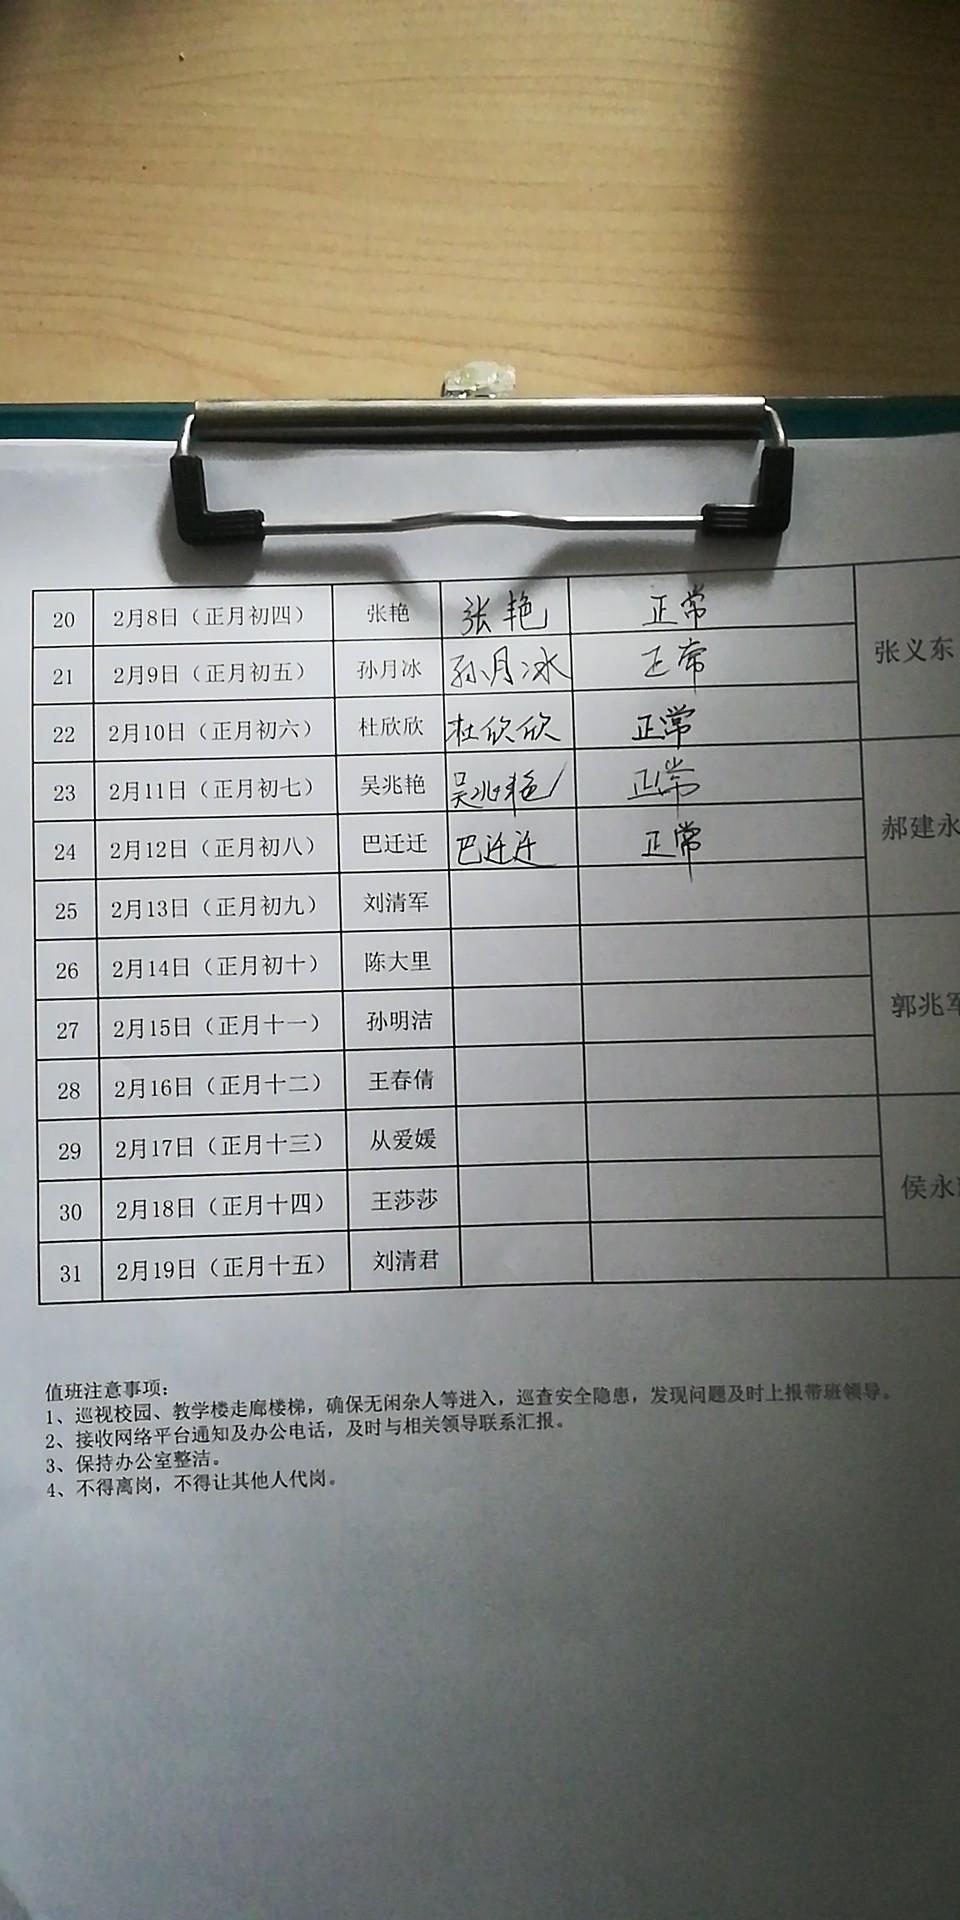 20 2月8日（正月初四） 张艳 张艳 正常
张义东
21 2月9日（正月初五） 孙月冰 孙月冰 正常
22 2月10日（正月初六） 杜欣欣 杜欣欣 正常
23 2月11日（正月初七） 吴兆艳 吴兆艳 正常
郝建永
24 2月12日（正月初八） 巴迁迁 巴迁迁 正常
25 2月13日（正月初九） 刘清军
26 2月14日（正月初十） 陈大里
郭兆军
27 2月15日（正月十一） 孙明洁
28 2月16日（正月十二） 王春倩
29 2月17日（正月十三） 从爱媛
30 2月18日（正月十四） 王莎莎
侯永
31 2月19日（正月十五） 刘清君
值班注意事项：
1、巡视校园、教学楼走廊楼梯，确保无闲杂人等进入，巡查安全隐患，发现问题及时上报带班领导。
2、接收网络平台通知及办公电话，及时与相关领导联系汇报。
3、保持办公室整洁。
4、不得离岗，不得让其他人代岗。